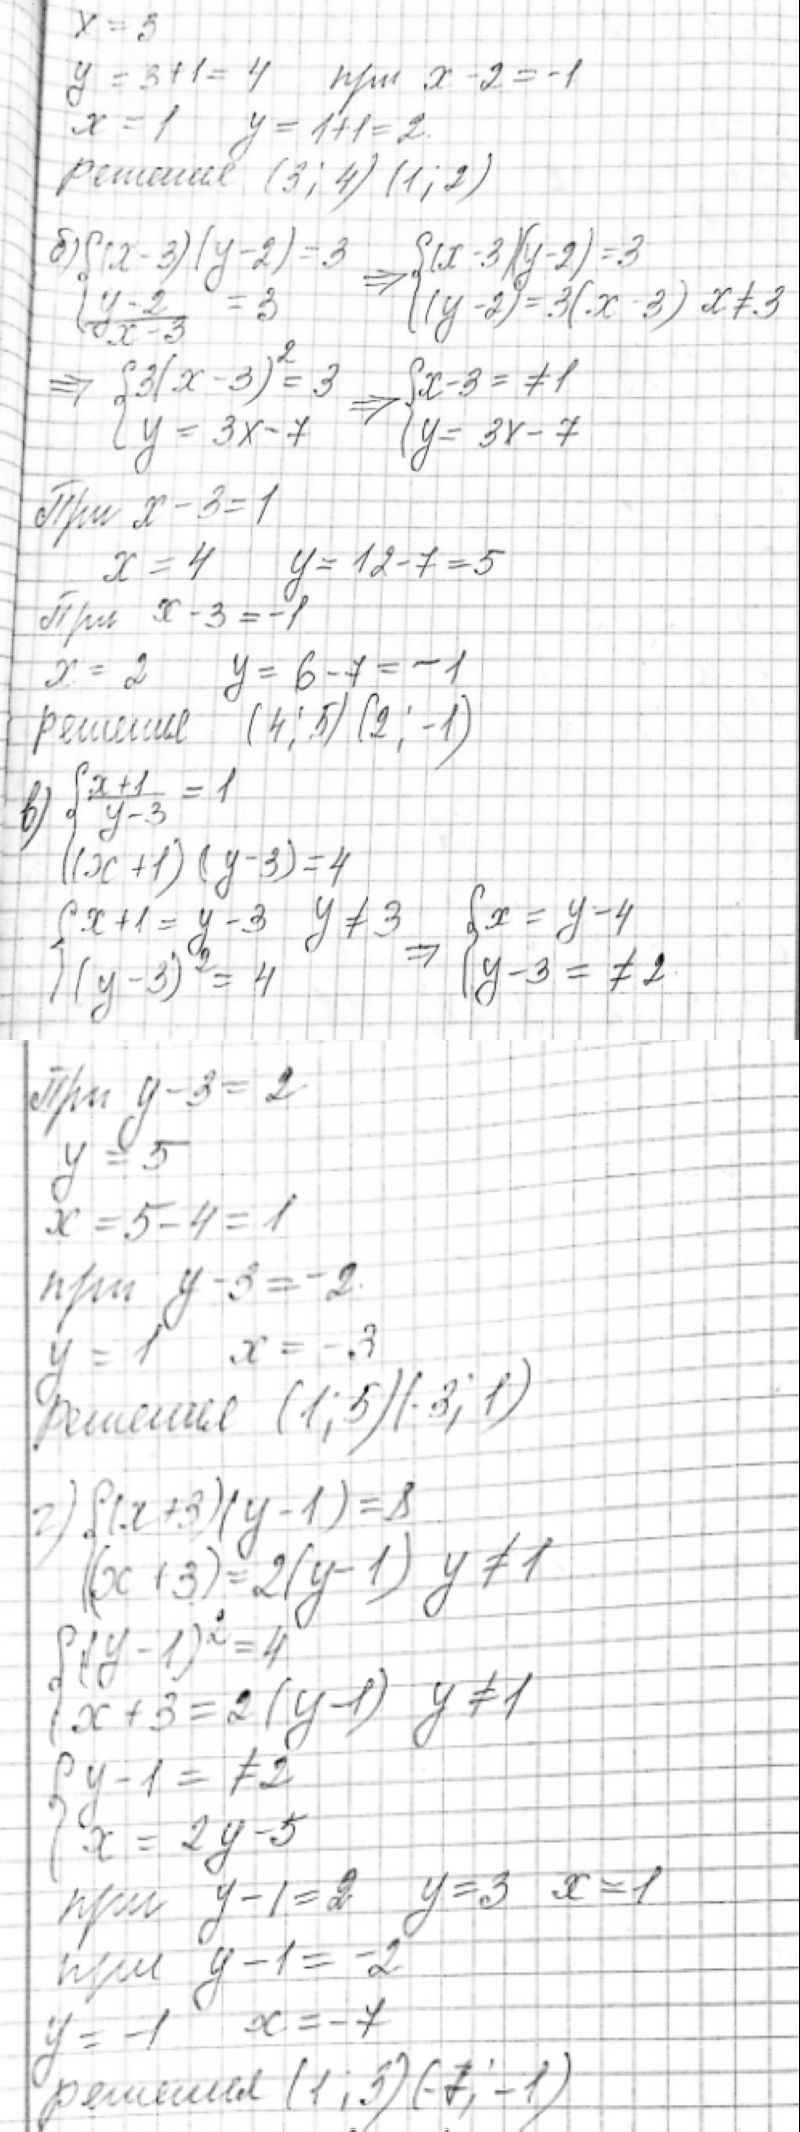 x = 3
y = 3+1 = 4 при x - 2 = -1
x = 1 y = 1+1 = 2.
решения (3; 4) (1; 2)
б) {(x-3)(y-2) = 3 ⇒ {(x-3)(y-2) = 3
{y-2/x-3 = 3 {(y-2) = 3(x-3) x≠3
⇒ {3(x-3)² = 3 ⇒ {x-3 = ≠1
{y = 3x-7 {y = 3x-7
При x-3 = 1
x = 4 y = 12-7 = 5
При x-3 = -1
x = 2 y = 6-7 = -1
решения (4; 5) (2; -1)
в) {x+1/y-3 = 1
{(x+1)(y-3) = 4
{x+1 = y-3 y≠3 ⇒ {x = y-4
{(y-3)² = 4 {y-3 = ≠2.
При y-3 = 2
y = 5
x = 5-4 = 1
при y-3 = -2.
y = 1 x = -3
решения (1; 5) (-3; 1)
г) {(x+3)(y-1) = 8
{(x+3) = 2(y-1) y≠1
{(y-1)² = 4
{x+3 = 2(y-1) y≠1
{y-1 = ≠2
{x = 2y-5
при y-1 = 2 y = 3 x = 1
при y-1 = -2
y = -1 x = -7
решения (1; 3) (-7; -1)